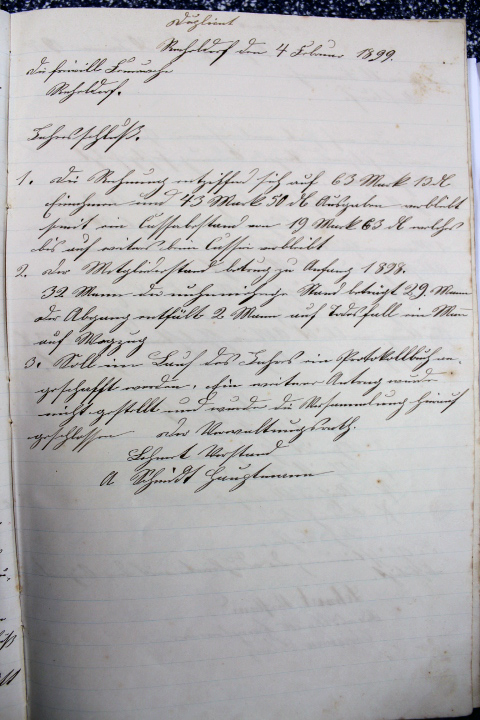 Duplicat
Ruhelsdorf den 4 Februar 1899.
Die freiwille Feuerwache
Jahresschluß.
1. Die Rechnung sich auf 63 Mark 13 ₰
Einnahmen und 43 Mark 50 ₰ Ausgaben verbleibt
somit ein Cassabestand von 19 Mark 63 ₰ welches
bis auf weiters beim Cassier verbleibt
2. Der Mitgliederstand betrug zu Anfang 1898.
32 Mann der Stand beträgt 29 Mann
Der Abgang entfällt 2 Mann auf Todesfall ein Mann
auf Wegzug
3. Soll im Lauf des Jahres ein Protokollbuch an-
geschafft werden, ein weiterer Antrag wurde
nicht gestellt und wurde die Versammlung hierauf
geschlossen der Verwaltungsrath.
Lehnert Vorstand
A Schmidt Hauptmann